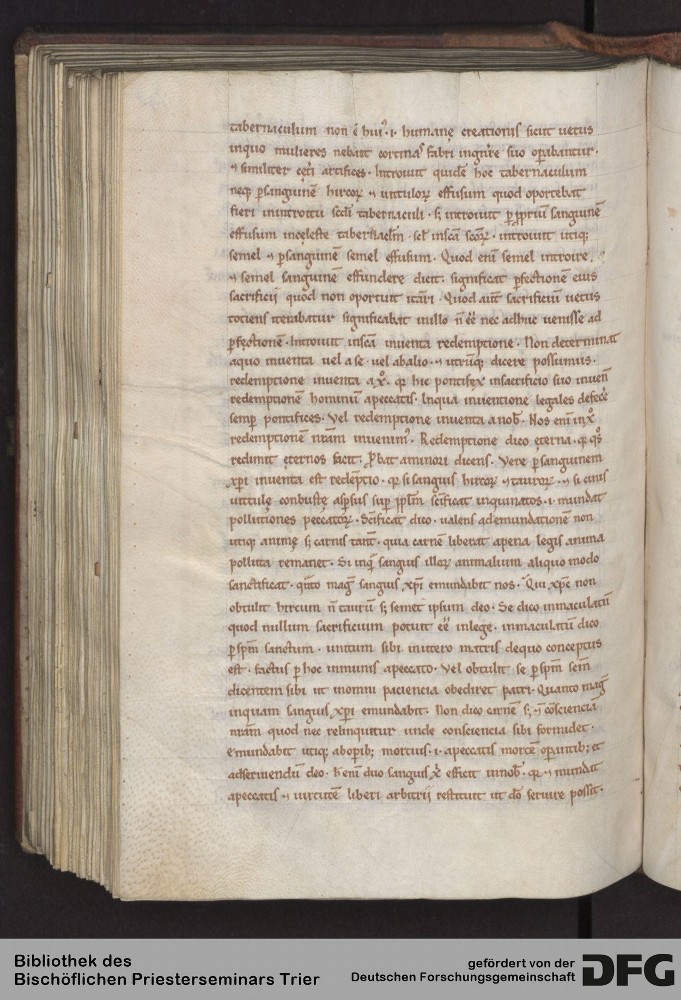 tabernaculum non ē huiꝰ · i · humanę creationis sicut uetus
inquo mulieres nebant cortinas fabri ingenere suo operabantur ·
⁊ similiter cęteri artifices · Introiuit quidē hoc tabernaculum
neque ꝑsanguinē hircoꝝ ⁊ uituloꝝ effusum quod oportebat
fieri inintroitu scdi tabernaculi · sꝫ introiuit ꝑ ꝓpriū sanguinē
effusum incęleste tabernaclm̄ · scꝫ inscā scoꝝ · introiuit utiqꝫ
semel ⁊ ꝑsanguinē semel effusum · Quod enī semel introire ·
⁊ semel sanguinē effundere dicit · significat ꝑfectionē eius
sacrificii quod non oportuit itari · Quod aut̄ sacrificiū uetus
totiens iterabatur significabat in illo n̄ eē nec adhuc uenisse ad
ꝑfectionē · Introiuit inscā inuenta redemptione · Non determinat
aquo inuenta uel a se · uel abalio · ⁊ utrūqꝫ dicere possumus ·
redemptione inuenta a xꝰ · quia hic pontifex insacrificio suo inuen̄
redemptionē hominū apeccatis · Inqua inuentione legales defecer̄
semꝑ pontifices · Vel redemptione inuenta anob · Nos enī inxō
redemptionē nr̄am inuenimꝰ · Redemptione dico ęterna · quia quos
redimit ęternos facit · ꝓbat aminori dicens · Vere ꝑsanguinem
xpi inuenta est redēptio · quia si sanguis hircoꝝ ⁊ tauroꝝ · ⁊ si cinis
uitulę conbustę asꝑsus suꝑ pplm̄ scificat inquinatos · i · mundat
pollutiones peccatoꝝ · Scificat dico · ualens ademundationē non
utiqꝫ animę sꝫ carnis tantū · quia carnē liberat apena legis anima
polluta remanet · Si inquā sanguis illoꝝ animalium aliquo modo
sanctificat · quanto magis sanguis xpi emundabit nos · Qui xpc non
obtulit hircum n̄ taurū sꝫ semet ipsum deo · Se dico inmaculatū
quod nullum sacrificium potuit eē inlege · inmaculatū dico
ꝑ spm̄ sanctum · unitum sibi inutero matris dequo conceptus
est · factus ꝑ hoc inmunis apeccato · Vel obtulit se ꝑ spm̄ scm̄
dicentem sibi ut inomni paciencia obediret patri · Quanto maḡ
inquam sanguis xpi emundabit · Non dico carnē sꝫ ⁊ consciencia
nr̄am quod nec relinquitur unde consciencia sibi formidet ·
emundabit utiqꝫ aboꝑibꝫ mortuis · i · apeccatis mortē oꝑantibꝫ · et
adseruiendū deo · h̄ enī duo sanguis xp̄i efficit innob · quia ⁊ mundat
apeccatis · ⁊ uirtutē liberi arbitrii restituit ut dō seruire possit ·
Bibliothek des
Bischöflichen Priesterseminars Trier
gefördert von der
Deutschen Forschungsgemeinschaft
DFG